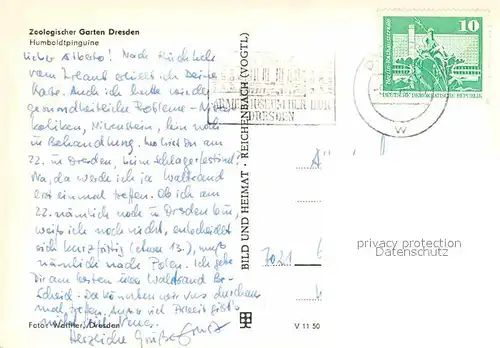 Zoologischer Garten Dresden
Humboldtpinguine
Lieber Alberto! Nach Rückkehr
vom Urlaub erhielt ich Deine
Karte. Auch ich hatte wieder
gesundheitliche Probleme - Nieren-
koliken, Nierenstein, bin noch
in Behandlung. Du bist am
22. in Dresden, beim Schlagerfestival?
Na, da werde ich ja Waltraud
erst einmal treffen. Ob ich am
22. nämlich noch in Dresden bin,
weiß ich noch nicht, entscheidet
sich kurzfristig (etwa 13.), muß
nämlich nach Polen. Ich gebe
Dir am besten über Waltraud Be-
scheid. Da könnten wir uns durchaus
mal treffen. Sonst viel
Herzliche Grüße Ernst
Foto: Dresden
BILD UND HEIMAT · REICHENBACH (VOGTL)
V 11 50
DRESDEN
W
10
DEUTSCHE DEMOKRATISCHE REPUBLIK
7021
privacy protection
Datenschutz